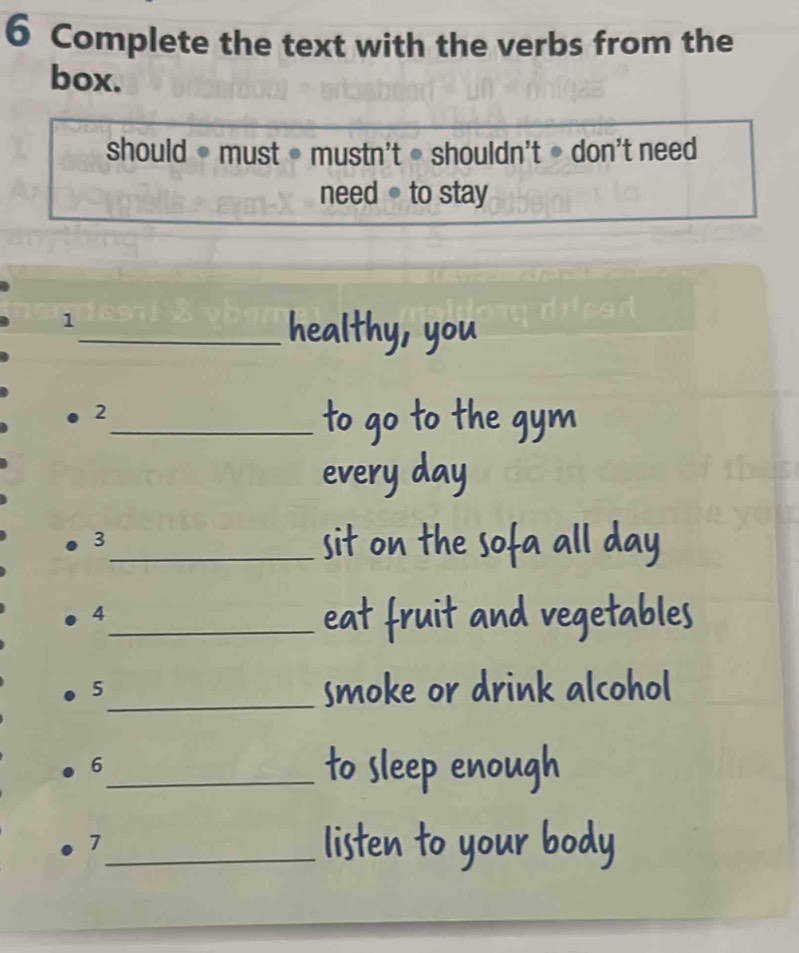 6 Complete the text with the verbs from the
box.
should • must • mustn't • shouldn't • don't need
need • to stay
1 ____________ healthy, you
• 2 ____________ to go to the gym
every day
• 3 ____________ sit on the sofa all day
• 4 ____________ eat fruit and vegetables
• 5 ____________ smoke or drink alcohol
• 6 ____________ to sleep enough
• 7 ____________ listen to your body